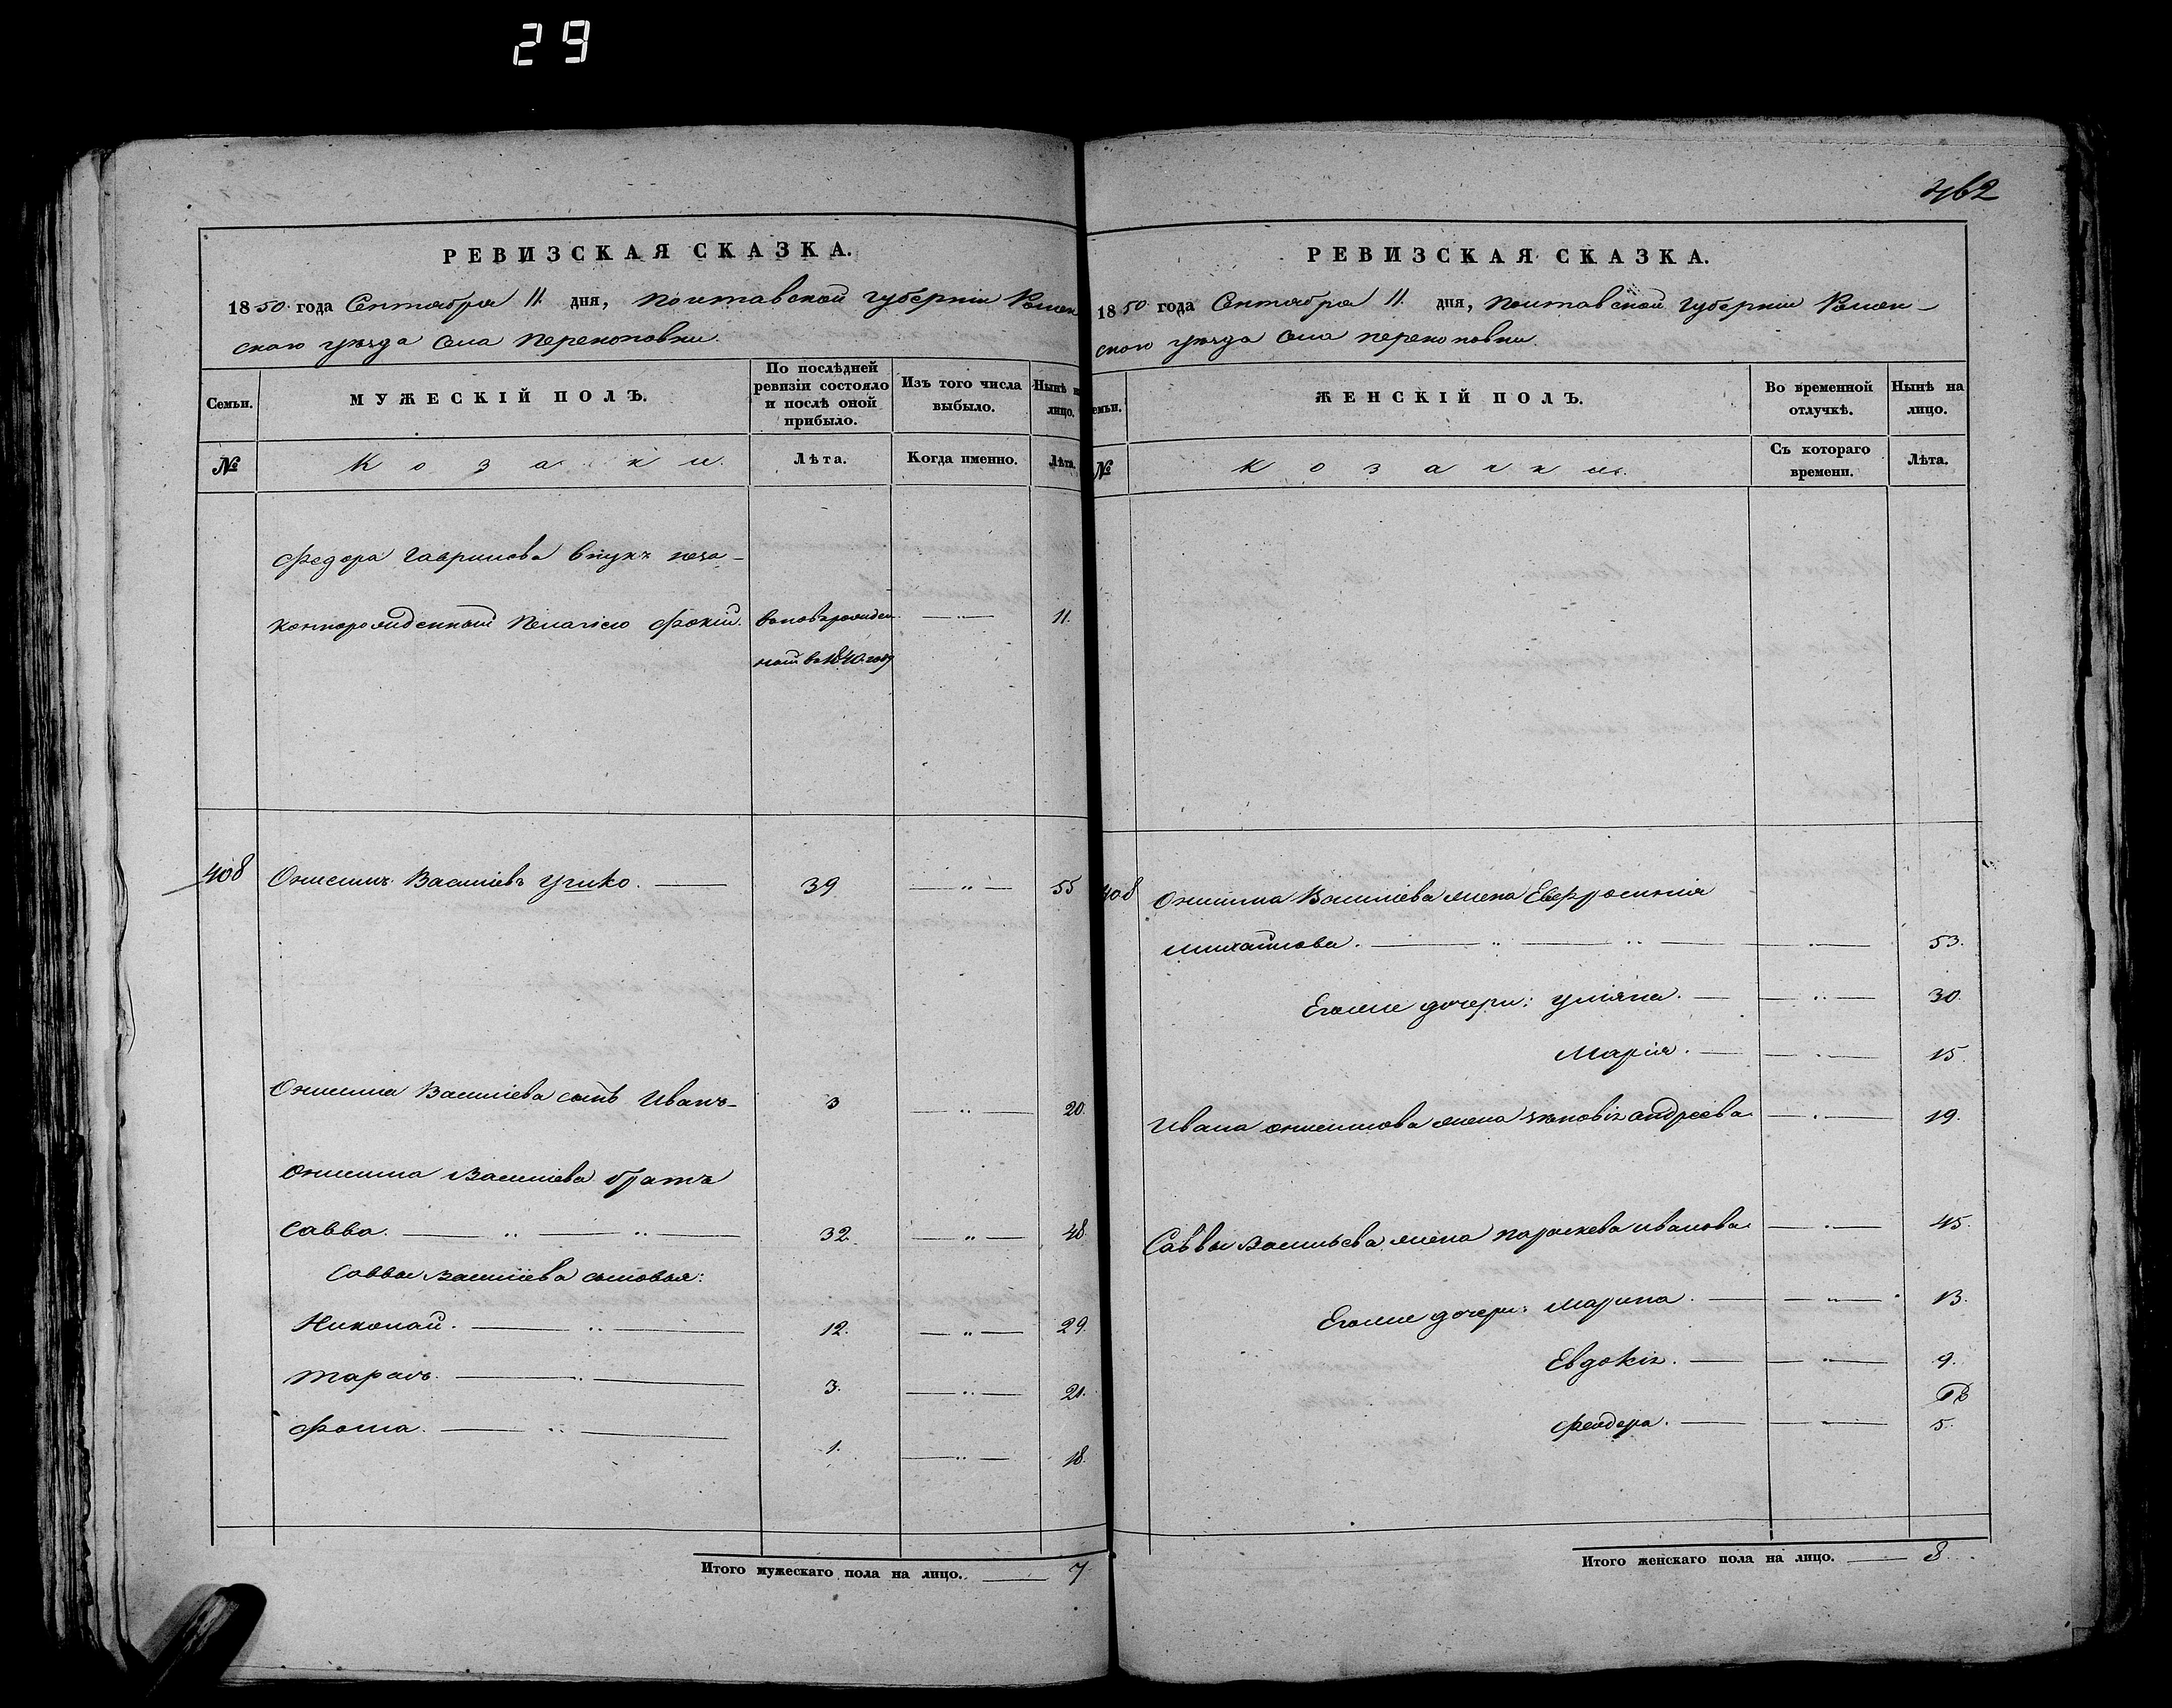 29
462
РЕВИЗСКАЯ СКАЗКА.
1850 года Сентября 11. дня, Полтавской Губерніи Ромен
скаго уѣзда села Перекоповки.
Семьи.
МУЖЕСКІЙ ПОЛЪ.
По послѣдней ревизіи состояло и послѣ оной прибыло.
Изъ того числа выбыло.
Нынѣ на лицо.
№
Козаки.
Лѣта.
Когда именно.
Лѣта.
Федора Гаврилова внукъ неза-
коннорожденный Пелагіею Фокій.
вновърожден
ный в 1840 году
11.
408
Онисимъ Василіевъ Угнко.
39
55
Онисима Василіева сынъ Иванъ
3
20.
Онисима Василіева братъ
Савва.
32.
48.
Саввы Василіева сыновья:
Николай.
12.
29.
Тарасъ.
3.
21.
Фома.
1.
18.
Итого мужескаго пола на лицо. 7
РЕВИЗСКАЯ СКАЗКА.
1850 года Сентября 11. дня, Полтавской Губерніи Ромен-
скаго уѣзда села Перекоповки.
емьи.
ЖЕНСКІЙ ПОЛЪ.
Во временной отлучкѣ.
Нынѣ на лицо.
№
Козачки.
Съ котораго времени.
Лѣта.
408
Онисима Василіева жена Евфросинія
Михайлова.
53.
Егоже дочери: Уліяна.
30.
Марія.
15.
Ивана Онисимова жена Зѣновія Андреева
19.
Саввы Васильева жена Параскева Иванова
45.
Егоже дочери: Марина.
13.
Евдокія.
9.
Феодора.
5.
Итого женскаго пола на лицо. 8